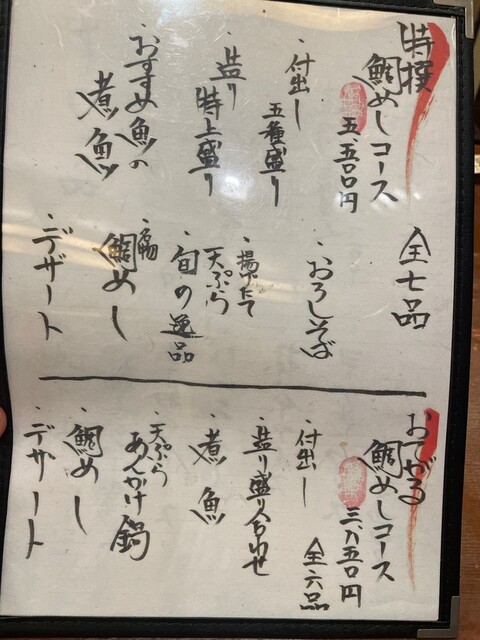 特撰
鯛めしコース
五、五〇〇円
全七品
・付出し
五種盛り
・造り
特上盛り
・おすすめ魚の
煮魚
・おろしそば
・揚げたて
天ぷら
・旬の逸品
鯛めし
・デザート
おてがる
鯛めしコース
三、八五〇円
全六品
・付出し
・造り盛り合わせ
・煮魚
・天ぷら
あんかけ鍋
・鯛めし
・デザート